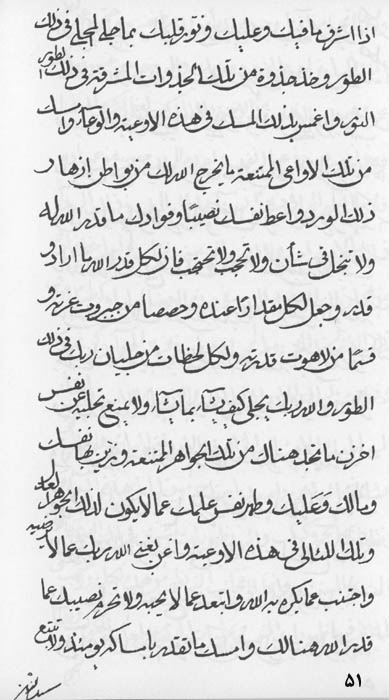 اذا اشرق ما فیك و علیك و تنور قلبك بما جلی المجلی فی ذلك
الطور و خذ جذوة من تلك الجذوات المشرقة فی ذلك الطور
النور و اغمس بذلك المسك فی هذه الاوعیة و الوعآء و امسك
من تلك الاواعی الممتنعة ما یخرج الله لك من بواطن ازهار
ذلك الورد و اعط نفسك نصیبًا و فؤادك ما قدر الله له
و لا تبخل فی شأن و لا تحجب و لا تحتجب فان لكل قدر الله ما اراد و
قدر و جعل لكل مقدارًا عنده و حصصا من جبروت عزته و
قسمًا من لاهوت قدرته و لكل لحظات من جلیان ربك فی ذلك
الطور و الله ربك یجلی كیف یشآء بما یشآء و لا یمنع تجلیه عن نفس
اخزن ما تجد هناك من تلك الجواهر الممتنعة و زین بها نفسك
و مالك و علیك و طهر نفس علمك عما لا یكون لذلك الجوهر
و تلك اللئالی فی هذه الاوعیة و اعرض بغض الله ربك عما لا یرضیه
و اجتنب عما یكره الله و ابتعد عما لا یحبه و لا تحرم نصیبك عما
قدر الله هنالك و امسك ما تقدر بامساكه یومئذ و لا تتبع
۵۱